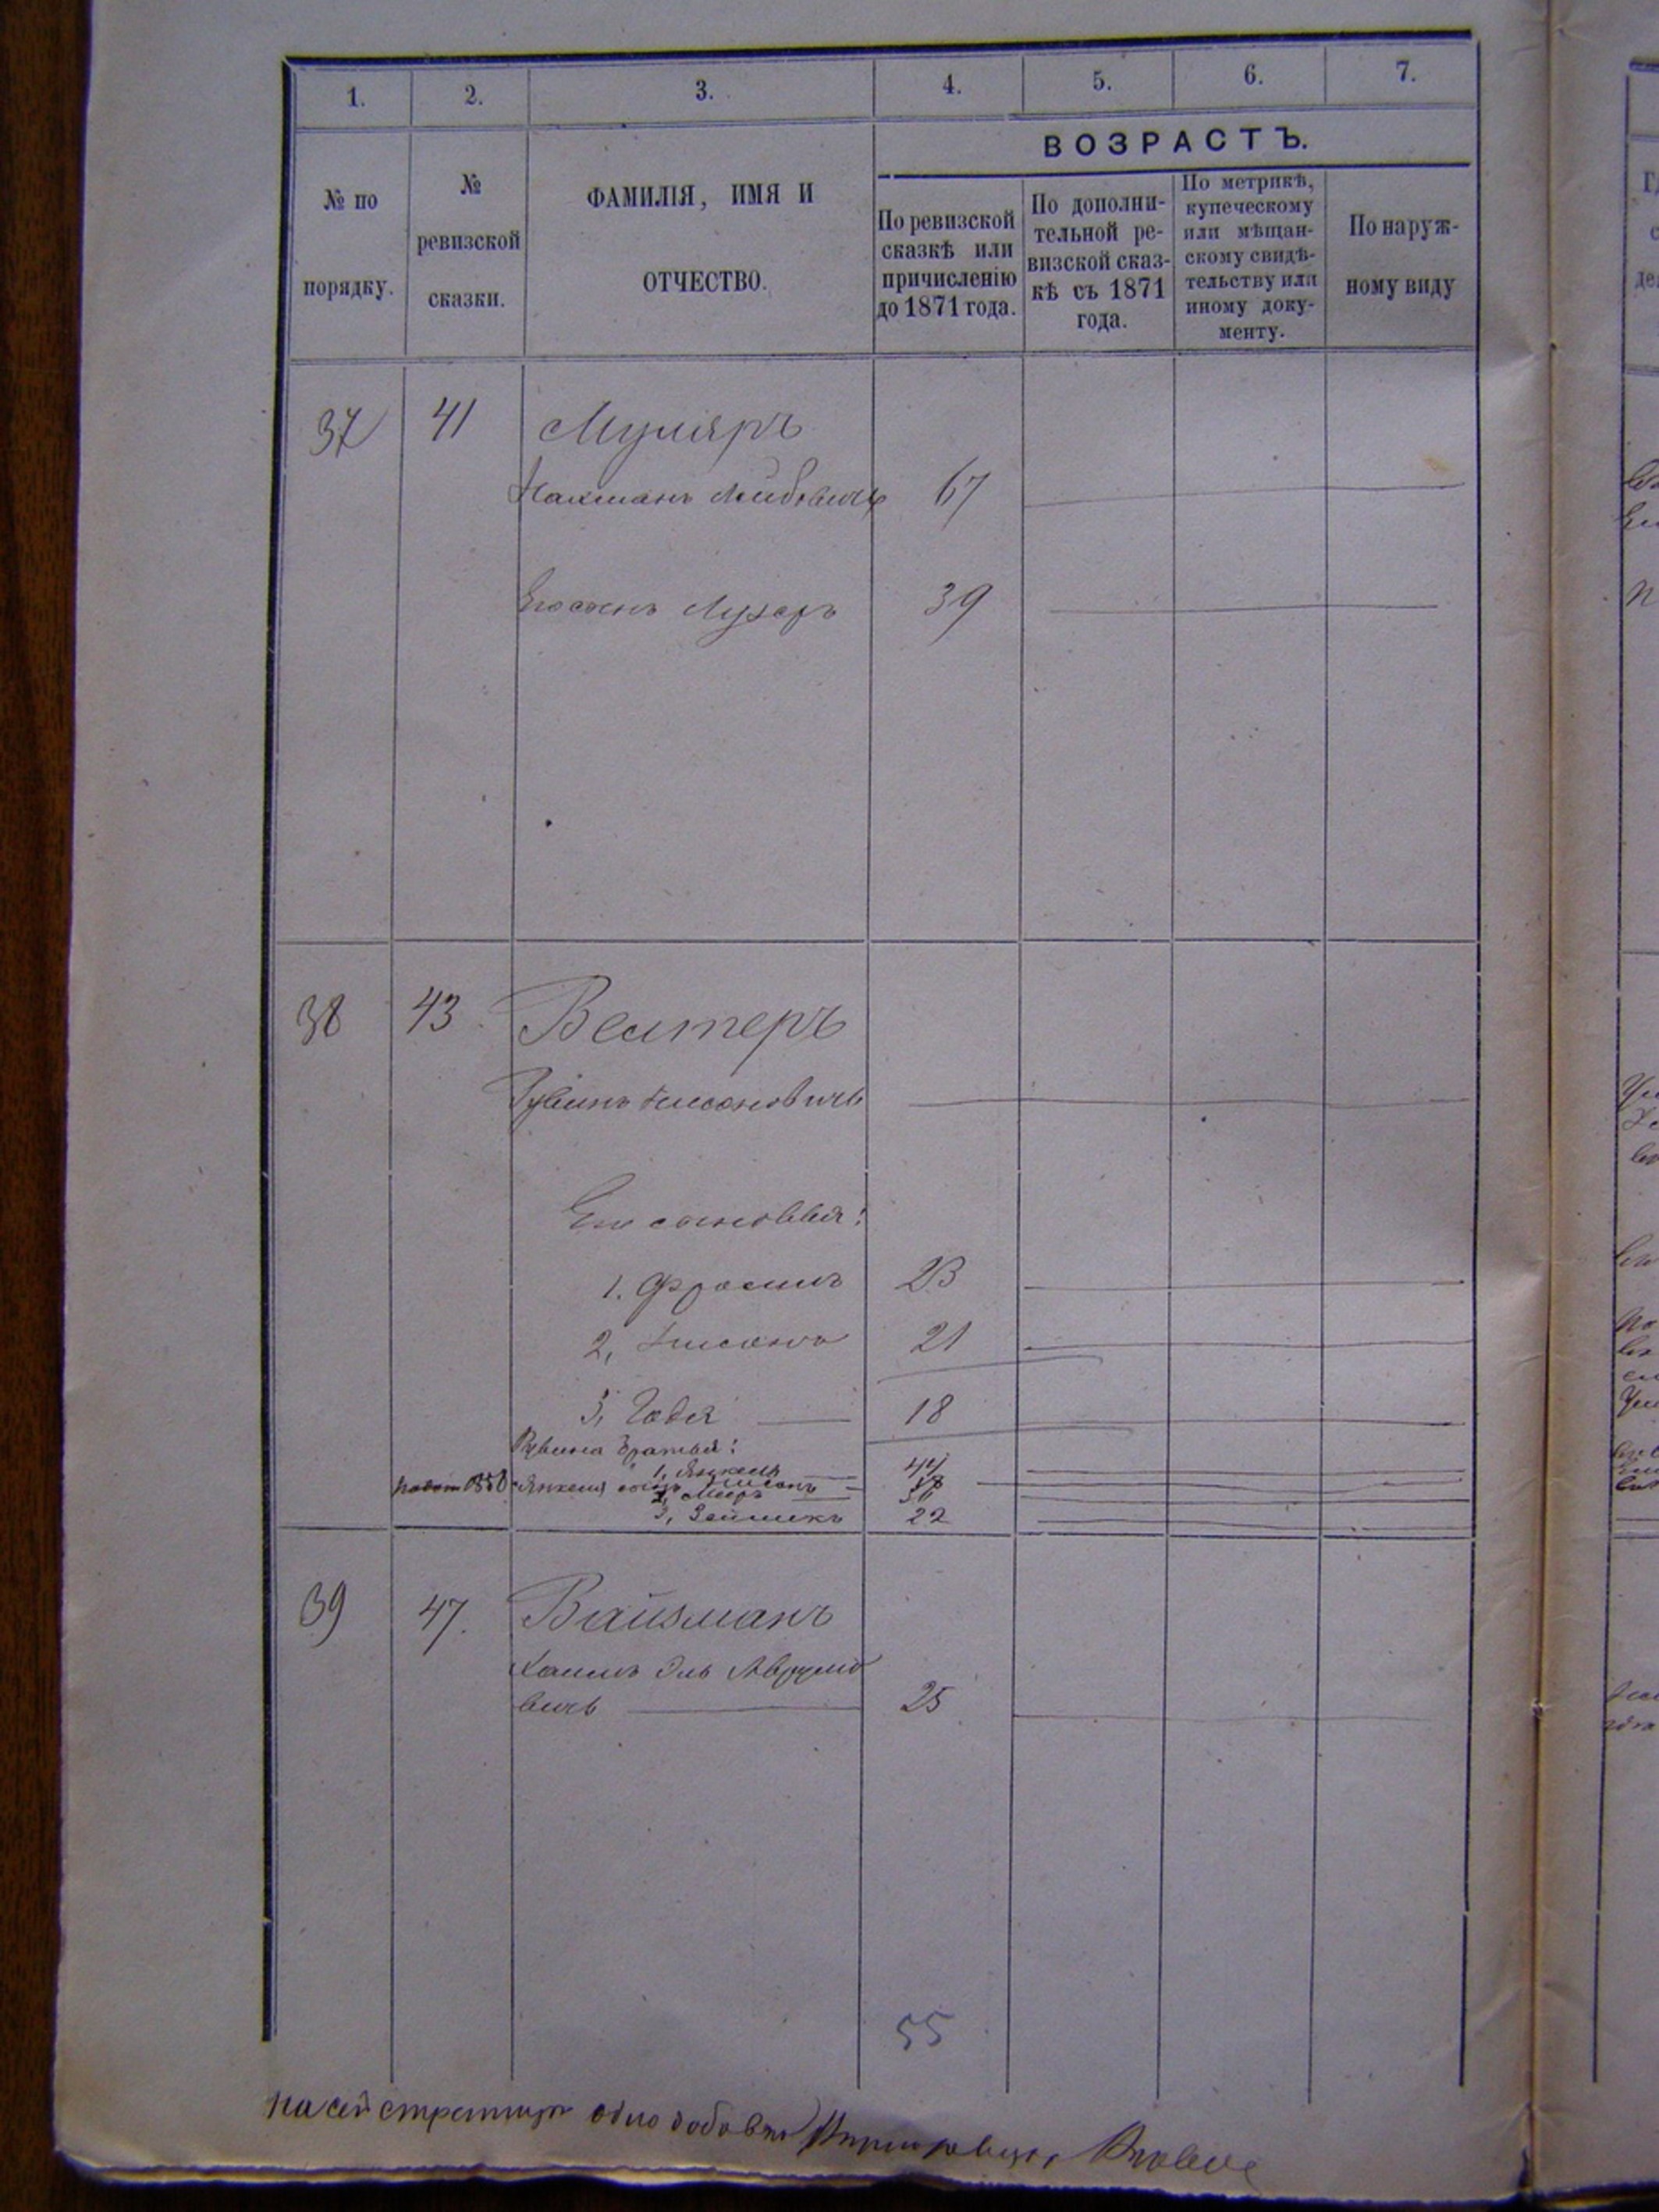 1. 2. 3. 4. 5. 6. 7.
ВОЗРАСТЪ.
№ по
порядку.
№
ревизской
сказки.
ФАМИЛІЯ, ИМЯ И
ОТЧЕСТВО.
По ревизской
сказкѣ или
причисленію
до 1871 года.
По дополни-
тельной ре-
визской сказ-
кѣ съ 1871
года.
По метрикѣ,
купеческому
или мѣщан-
скому свидѣ-
тельству или
иному доку-
менту.
По наруж-
ному виду
37 41 Муляръ
Нахманъ Лейбовичъ 67
Его сынъ Лузеръ 39
38 43 Велтеръ
Рувинъ Нисоновичъ
Его сыновья:
1. Фроимъ 23
2, Нисонъ 21
3, Годя 18
Рувина братья:
1, Янкель 44
Янкеля сынъ Нисонъ 18
2, Мееръ
3, Зейликъ 22
39 47. Вайзманъ
Хаимъ Эль Аврумо
вичъ 25
55
на сей странице одно